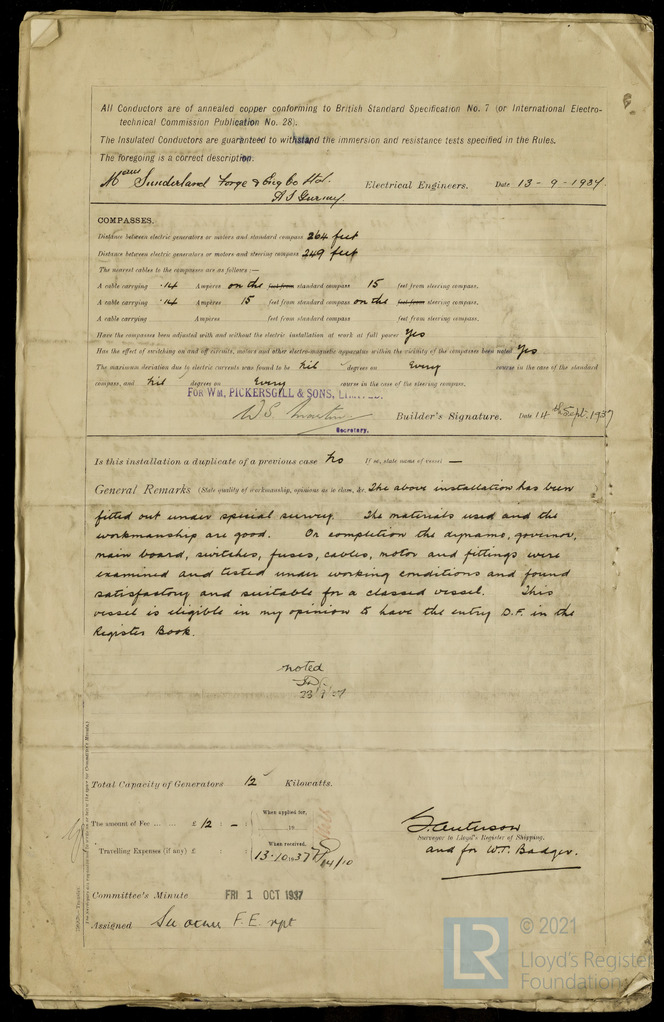 All Conductors are of annealed copper conforming to British Standard Specification No. 7 (or International Electro-
technical Commission Publication No. 28).
The Insulated Conductors are guaranteed to withstand the immersion and resistance tests specified in the Rules.
The foregoing is a correct description.
Sunderland Forge & Eng Co Ltd. Electrical Engineers. Date 13-9-1937
COMPASSES.
Distance between electric generators or motors and standard compass 264 feet
Distance between electric generators or motors and steering compass 249 feet
The nearest cables to the compasses are as follows:—
A cable carrying .14 Ampères on the feet from standard compass 15 feet from steering compass.
A cable carrying .14 Ampères 15 feet from standard compass on the feet from steering compass.
A cable carrying Ampères feet from standard compass feet from steering compass.
Have the compasses been adjusted with and without the electric installation at work at full power Yes
Has the effect of switching on and off circuits, motors and other electro-magnetic apparatus within the vicinity of the compasses been noted Yes
The maximum deviation due to electric currents was found to be Nil degrees on Every course in the case of the standard
compass, and Nil degrees on Every course in the case of the steering compass.
FOR WM. PICKERSGILL & SONS, LIMITED.
Builder's Signature. Date 14th Sept. 1937
Secretary.
Is this installation a duplicate of a previous case No If so, state name of vessel —
General Remarks (State quality of workmanship, opinions as to class, &c. The above installation has been
fitted out under special survey. The materials used and the
workmanship are good. On completion the dynamo, governor,
main board, switches, fuses, cables, motor and fittings were
examined and tested under working conditions and found
satisfactory and suitable for a classed vessel. This
vessel is eligible in my opinion to have the entry D.F. in the
Register Book.
noted
Total Capacity of Generators 12 Kilowatts.
The amount of Fee ... ... £ 12 : –
When applied for,
19
Travelling Expenses (if any) £
When received,
13.10.1937
Surveyor to Lloyd's Register of Shipping.
and for W.T. Badger.
Committee's Minute FRI 1 OCT 1937
Assigned See other F.E. rpt
LR
© 2021
Lloyd's Register
Foundation